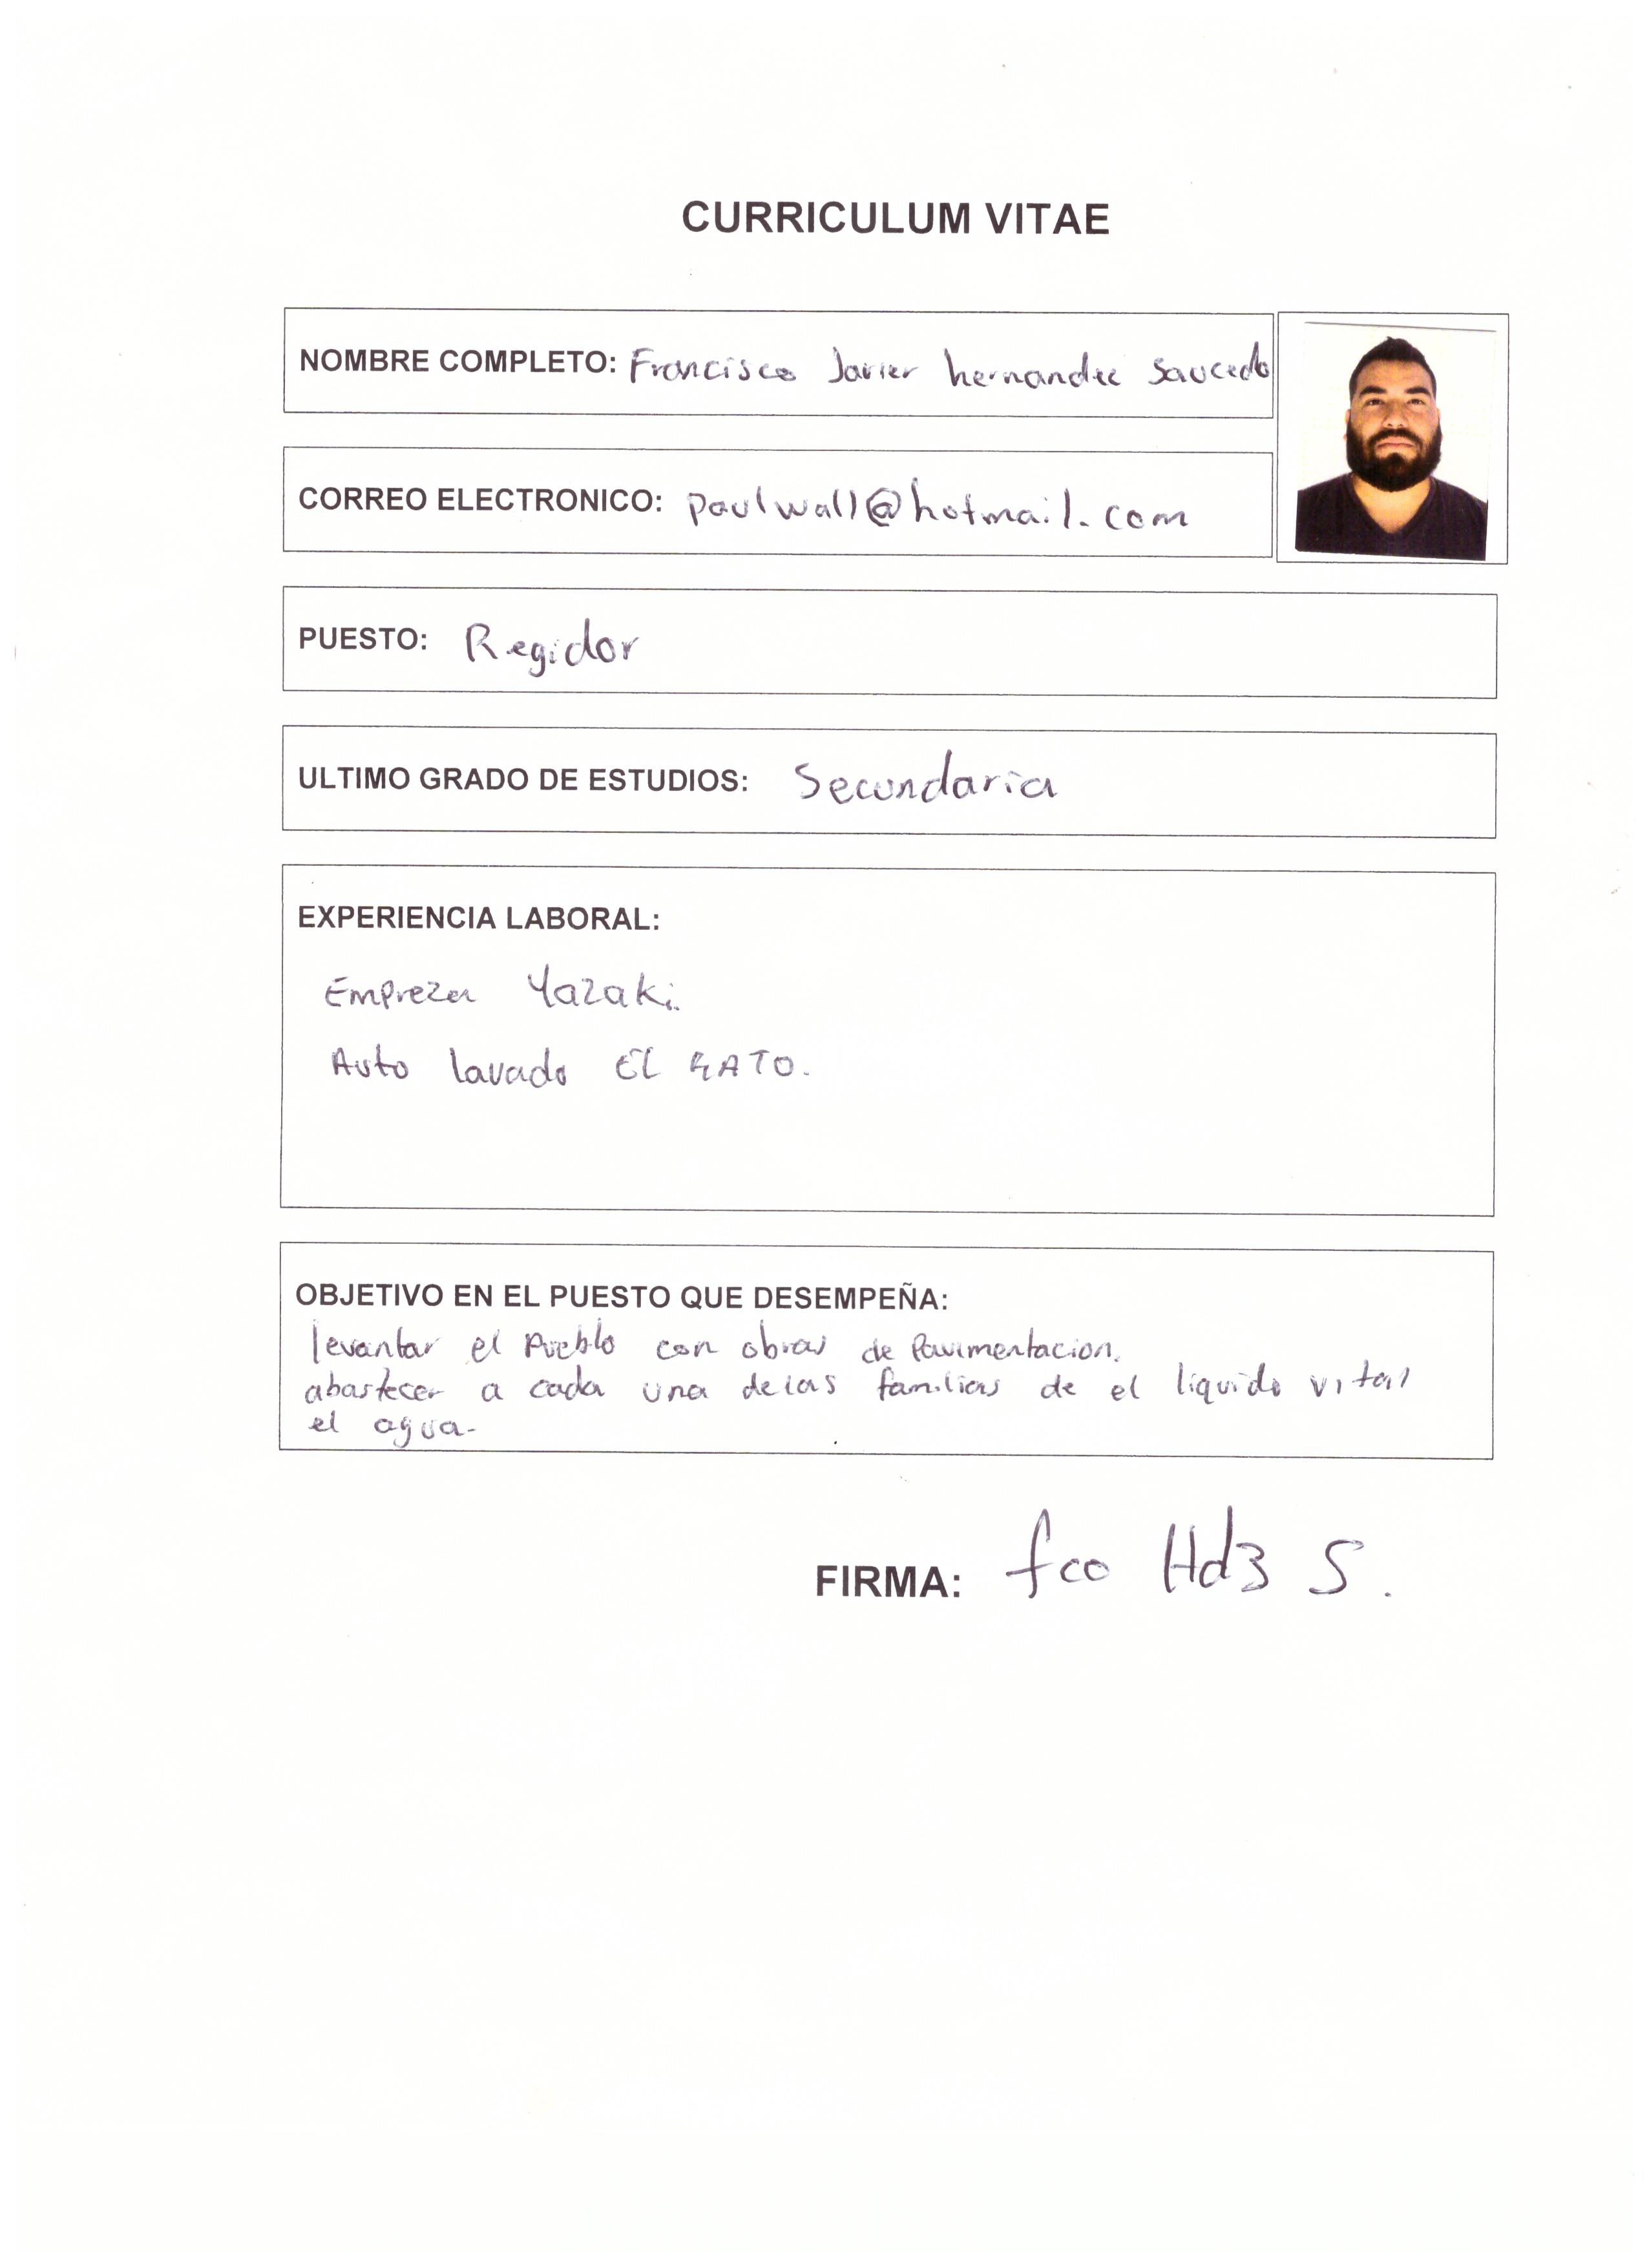 CURRICULUM VITAE
NOMBRE COMPLETO: Francisco Javier hernandez Saucedo
CORREO ELECTRONICO: paulwall@hotmail.com
PUESTO: Regidor
ULTIMO GRADO DE ESTUDIOS: Secundaria
EXPERIENCIA LABORAL:
Empreza Yazaki.
Auto lavado EL GATO.
OBJETIVO EN EL PUESTO QUE DESEMPEÑA:
levantar el Pueblo con obras de Pavimentacion.
abastecer a cada una delas familias de el liquido vital
el agua-
FIRMA: fco Hd3 S.